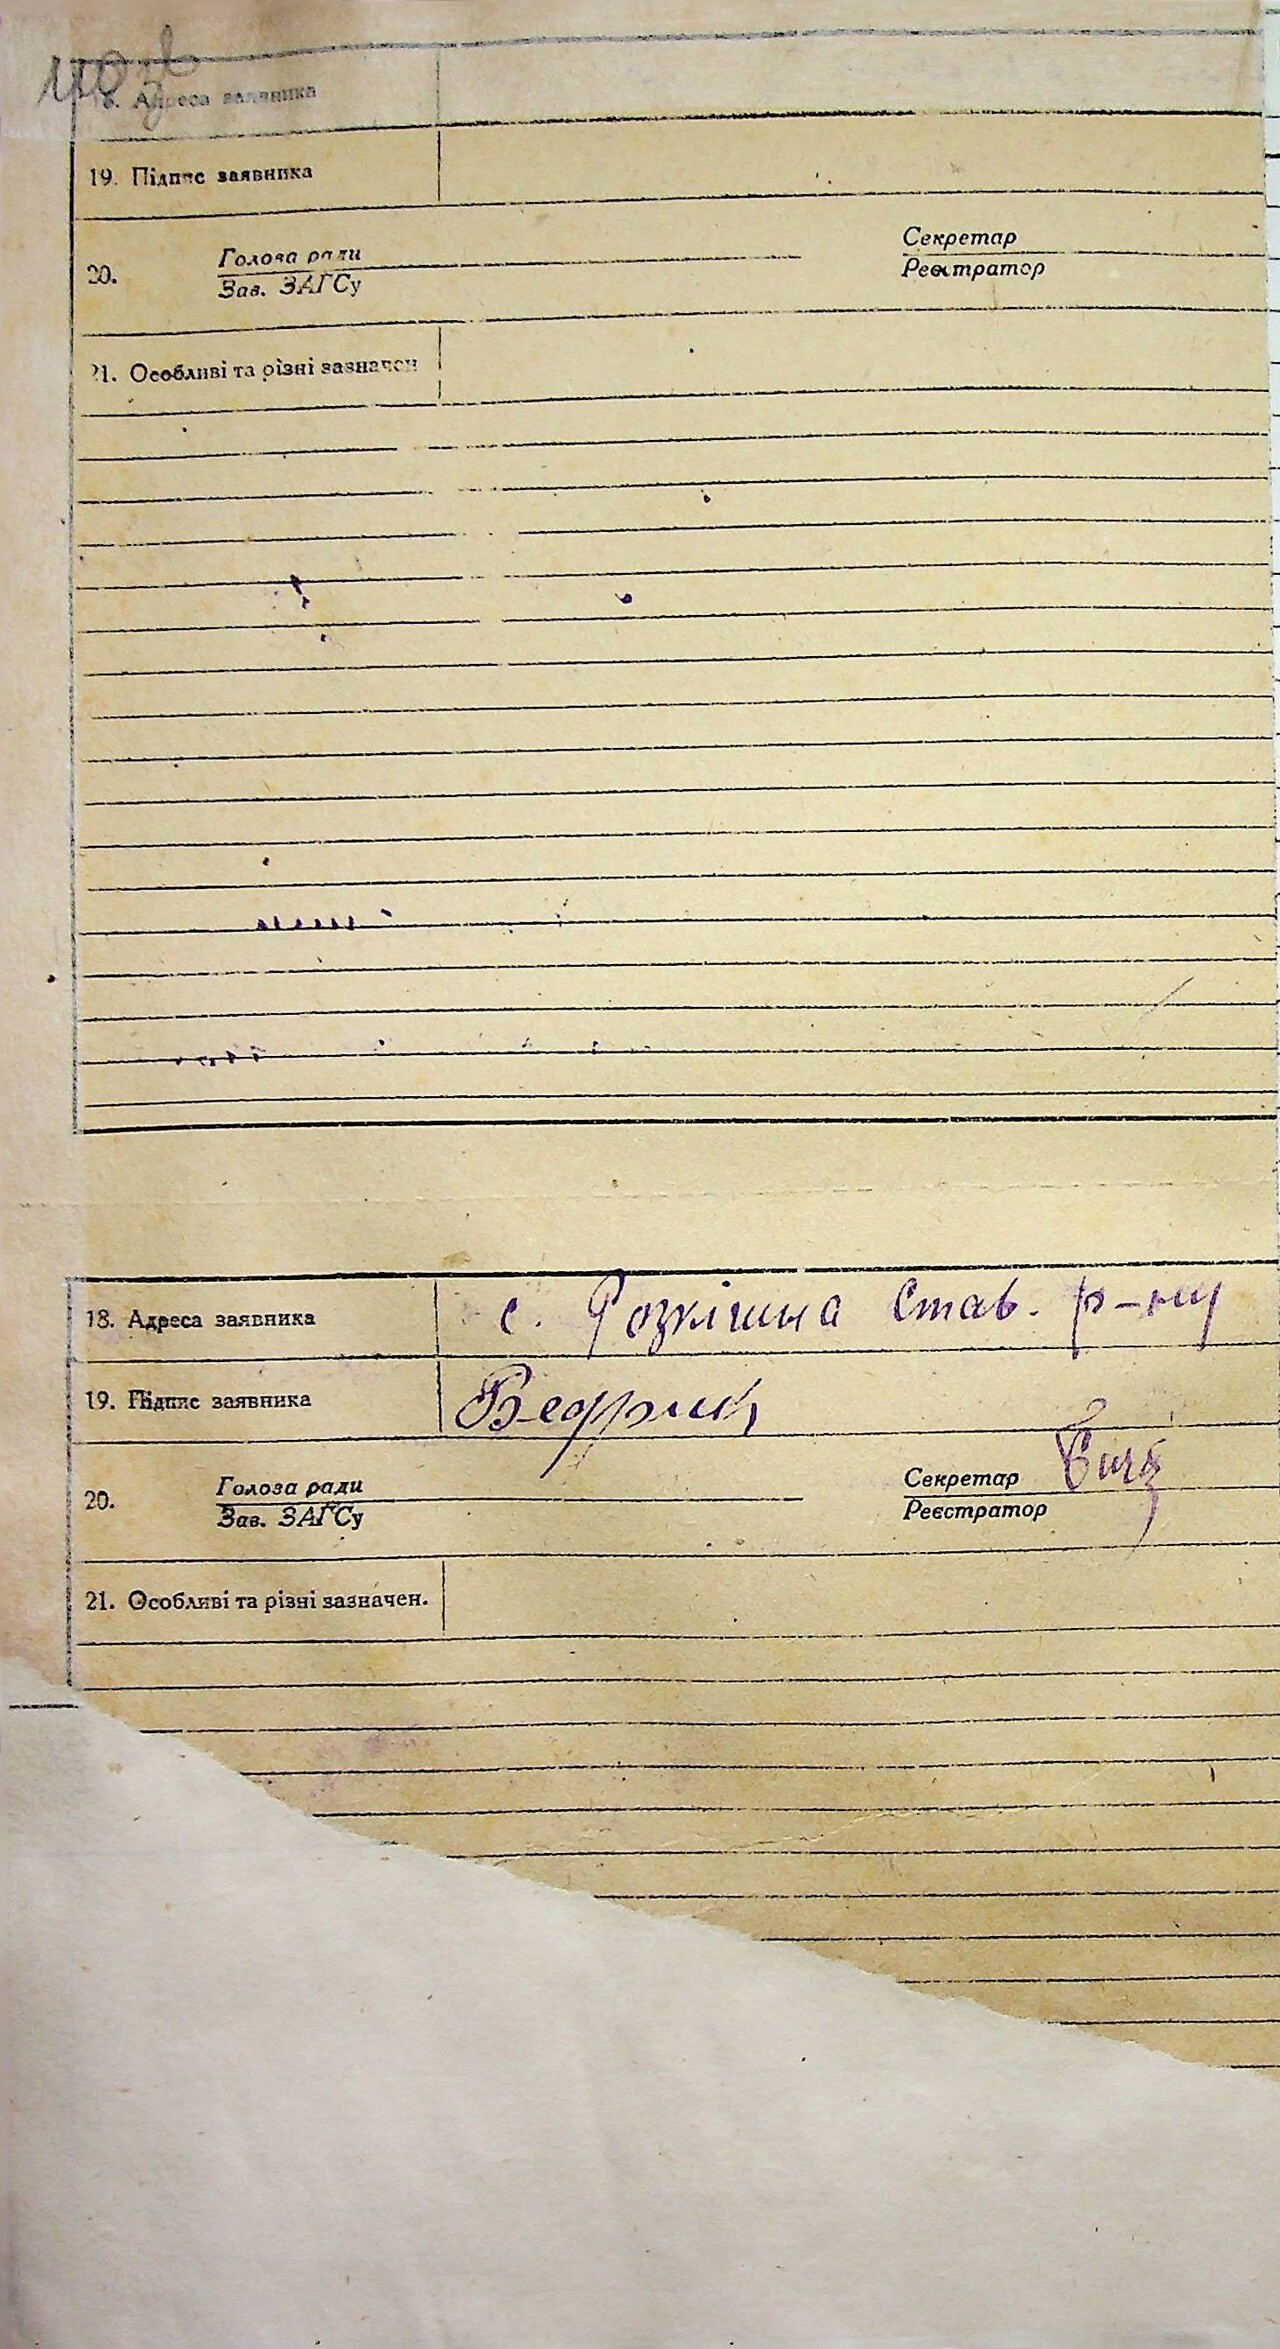 Адреса заявника
19. Підпис заявника
Голова ради
Секретар
20.
Зав. ЗАГСу
Реєстратор
21. Особливі та різні зазначен
18. Адреса заявника с. Розкішна Став. р-ну
19. Підпис заявника
Голова ради
Секретар
20.
Зав. ЗАГСу
Реєстратор
21. Особливі та різні зазначен.